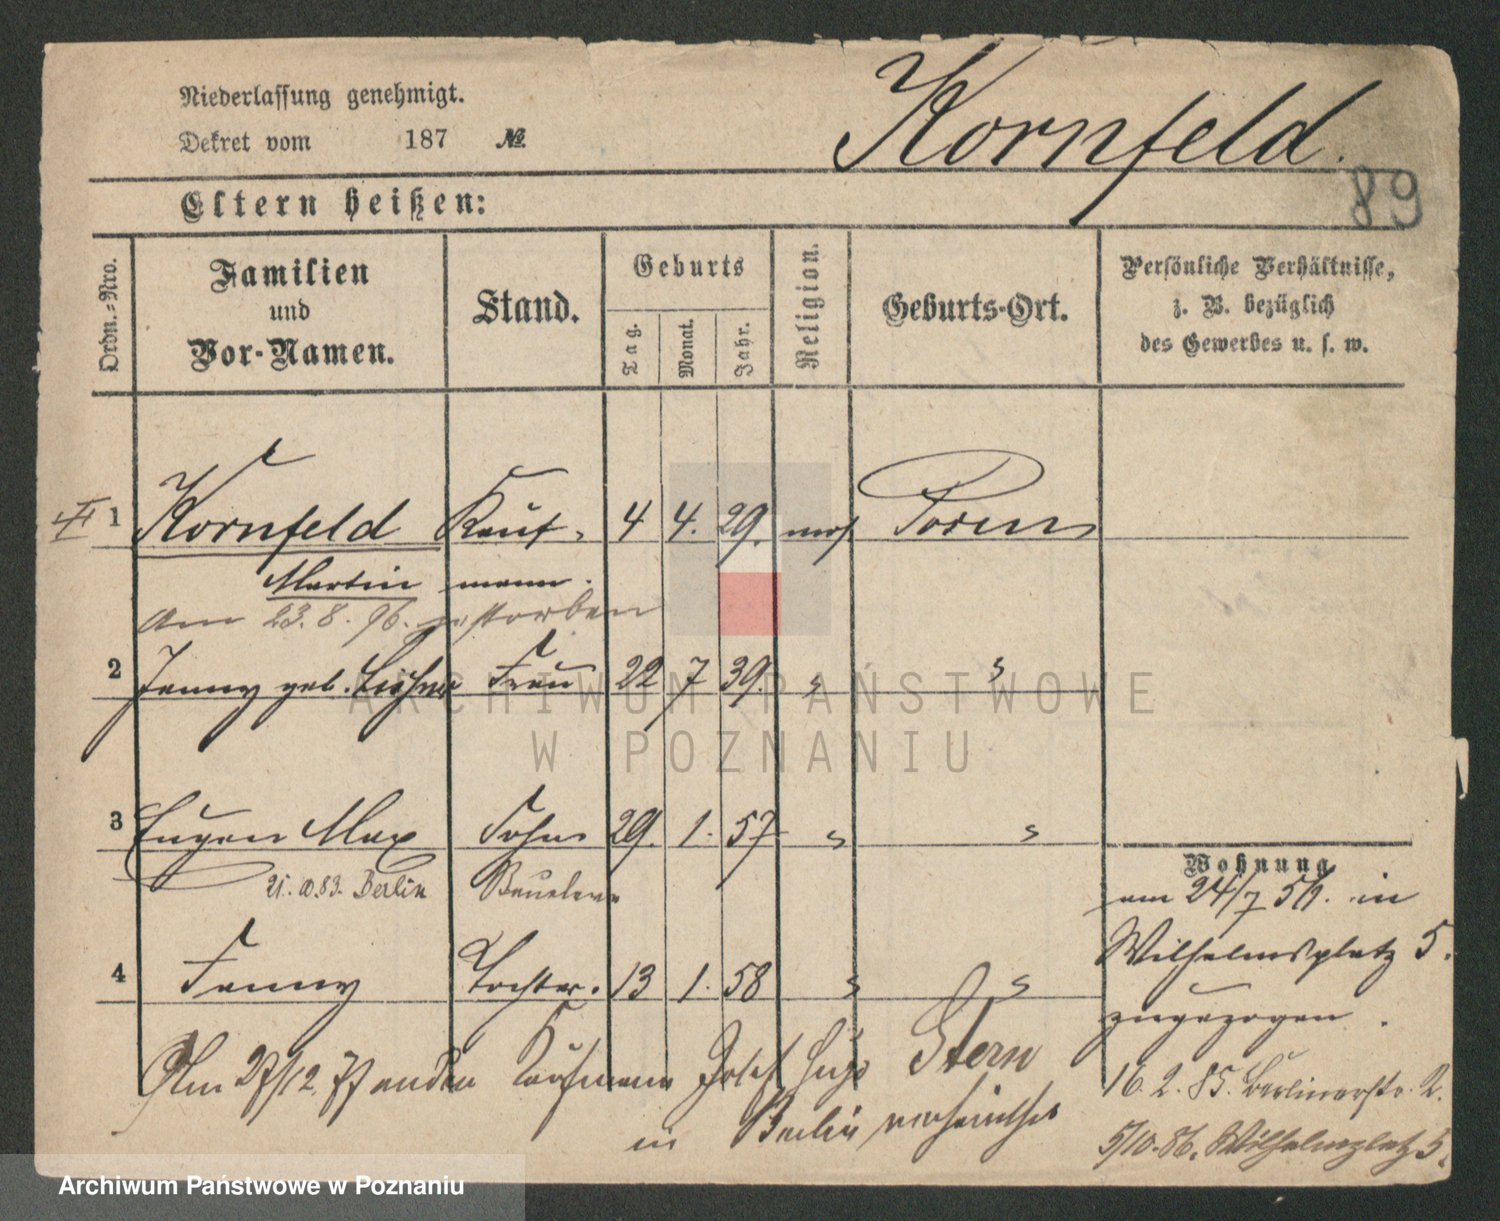 Niederlassung genehmigt.
Dekret vom 187 №
Kornfeld.
89
Eltern heißen:
Ordn.-Nro.
Familien
und
Vor-Namen.
Stand.
Geburts
Tag.
Monat.
Jahr.
Religion.
Geburts-Ort.
Persönliche Verhältnisse,
z. B. bezüglich
des Gewerbes u. s. w.
1 Kornfeld Kauf- 4 4. 29. mos Posen
Martin mann.
Am 23.8.96. gestorben
2 Jenny geb. Frau 22 7 39. " "
3 Eugen Max Sohn 29. 1. 57 " "
21.10.83. Berlin
4 Fanny Tochter. 13 1. 58 " "
Am 27/12 77 an den Kaufmann Josef Hugo Stern
in Berlin verheirathet
Wohnung
am 24/7 in
Wilhelmsplatz 5.
zugezogen.
16.2.85. Berlinerstr. 2.
5/10.86. Wilhelmsplatz 5.
ARCHIWUM PAŃSTWOWE
W POZNANIU
Archiwum Państwowe w Poznaniu